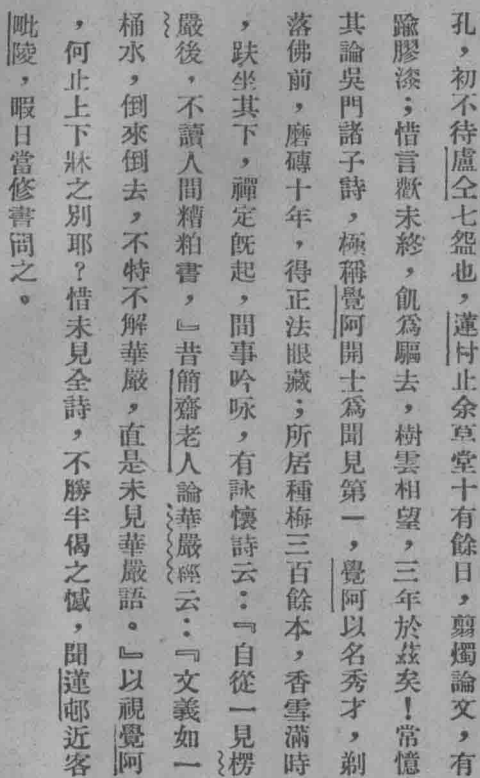 孔，初不待盧仝七盌也，蓮村止余草堂十有餘日，翦燭論文，有
踰膠漆；惜言歡未終，飢爲驅去，樹雲相望，三年於茲矣！常憶
其論吳門諸子詩，極稱覺阿開士爲聞見第一，覺阿以名秀才，剃
落佛前，磨磚十年，得正法眼藏；所居種梅三百餘本，香雪滿時
，趺坐其下，禪定旣起，間事吟咏，有詠懷詩云：『自從一見楞
嚴後，不讀人間糟粕書，』昔簡齋老人論華嚴經云：『文義如一
桶水，倒來倒去，不特不解華嚴，直是未見華嚴語。』以視覺阿
，何止上下牀之別耶？惜未見全詩，不勝半偈之憾，聞蓮邨近客
毗陵，暇日當修書問之。